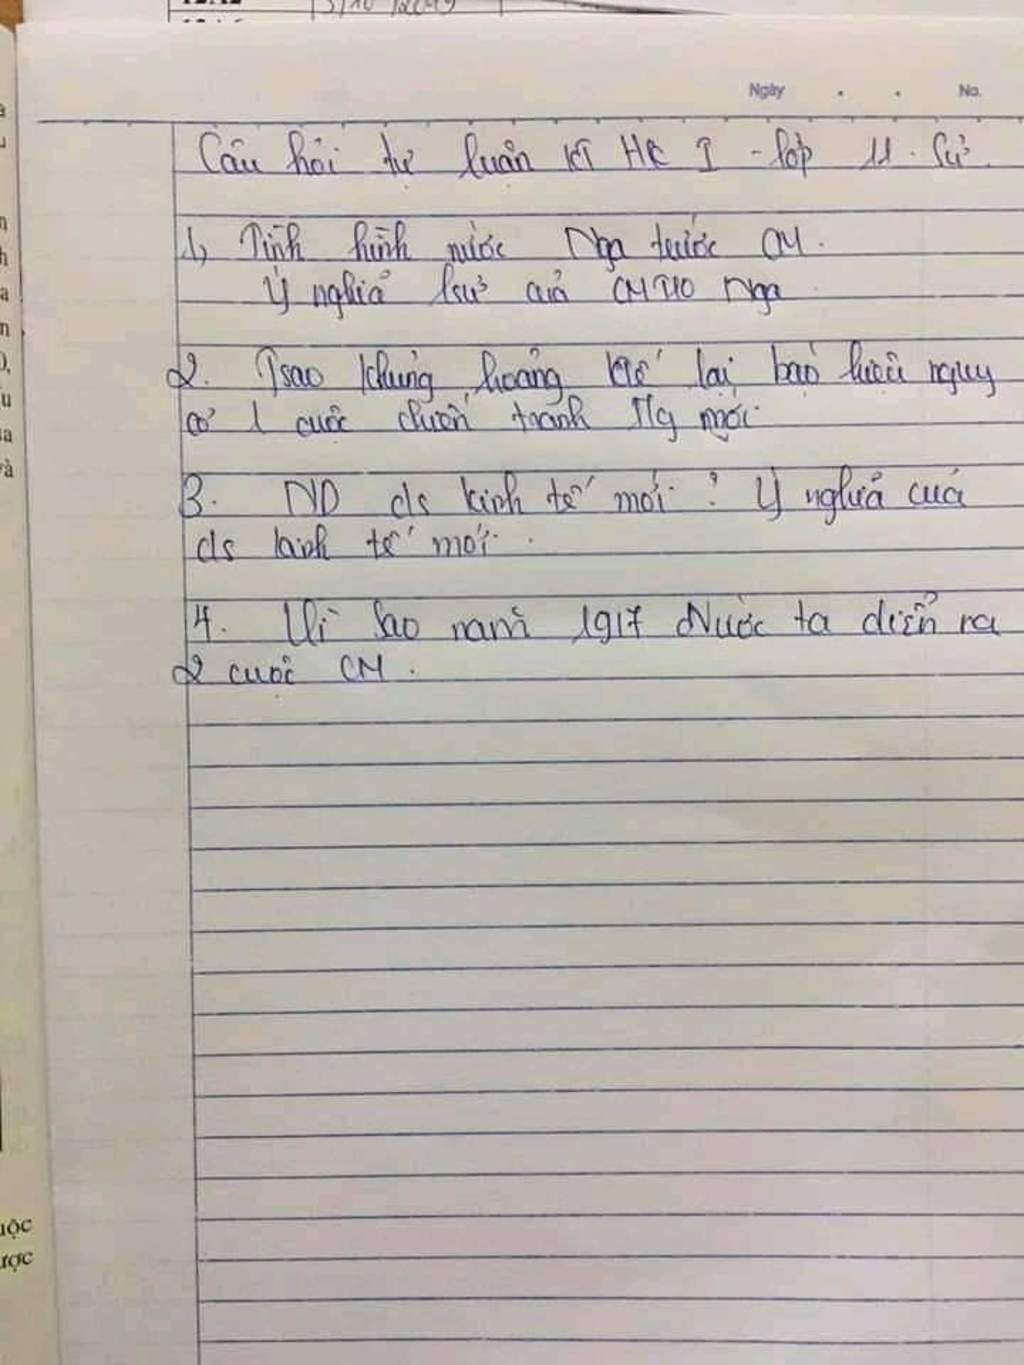 12A2 5/10/2019
Ngày . . No.
Câu hỏi tự luận KT HK I - lớp 11. Sử.
1, Tình hình nước Nga trước CM.
Ý nghĩa lsử của CMT10 Nga
2. Tsao khủng hoảng ktế lại báo hiệu nguy
cơ 1 cuộc chiến tranh TG mới.
3. ND cs kinh tế mới? Ý nghĩa của
cs kinh tế mới.
4. Vì sao năm 1917 Nước ta diễn ra
2 cuộc CM.
uộc
ược